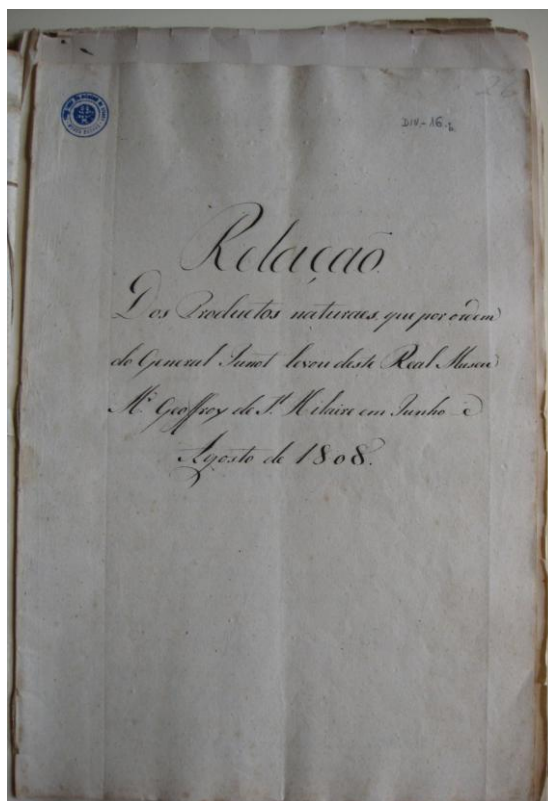 26
DIV.-16-b
Relação
Dos Productos naturaes, que por ordem
do General Junot levou deste Real Museu
Mr. Geoffroy de St. Hilaire em Junho e
Agosto de 1808.